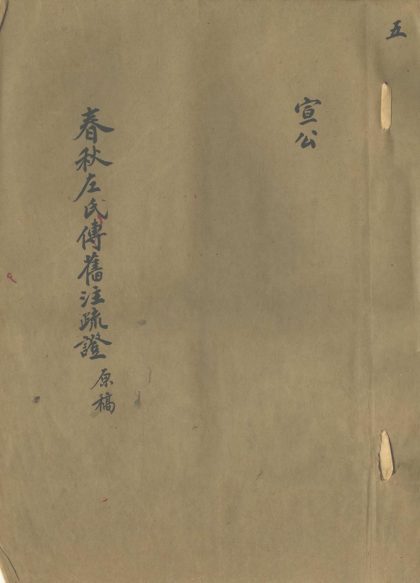 五
宣公
春秋左氏傳舊注疏證 原稿